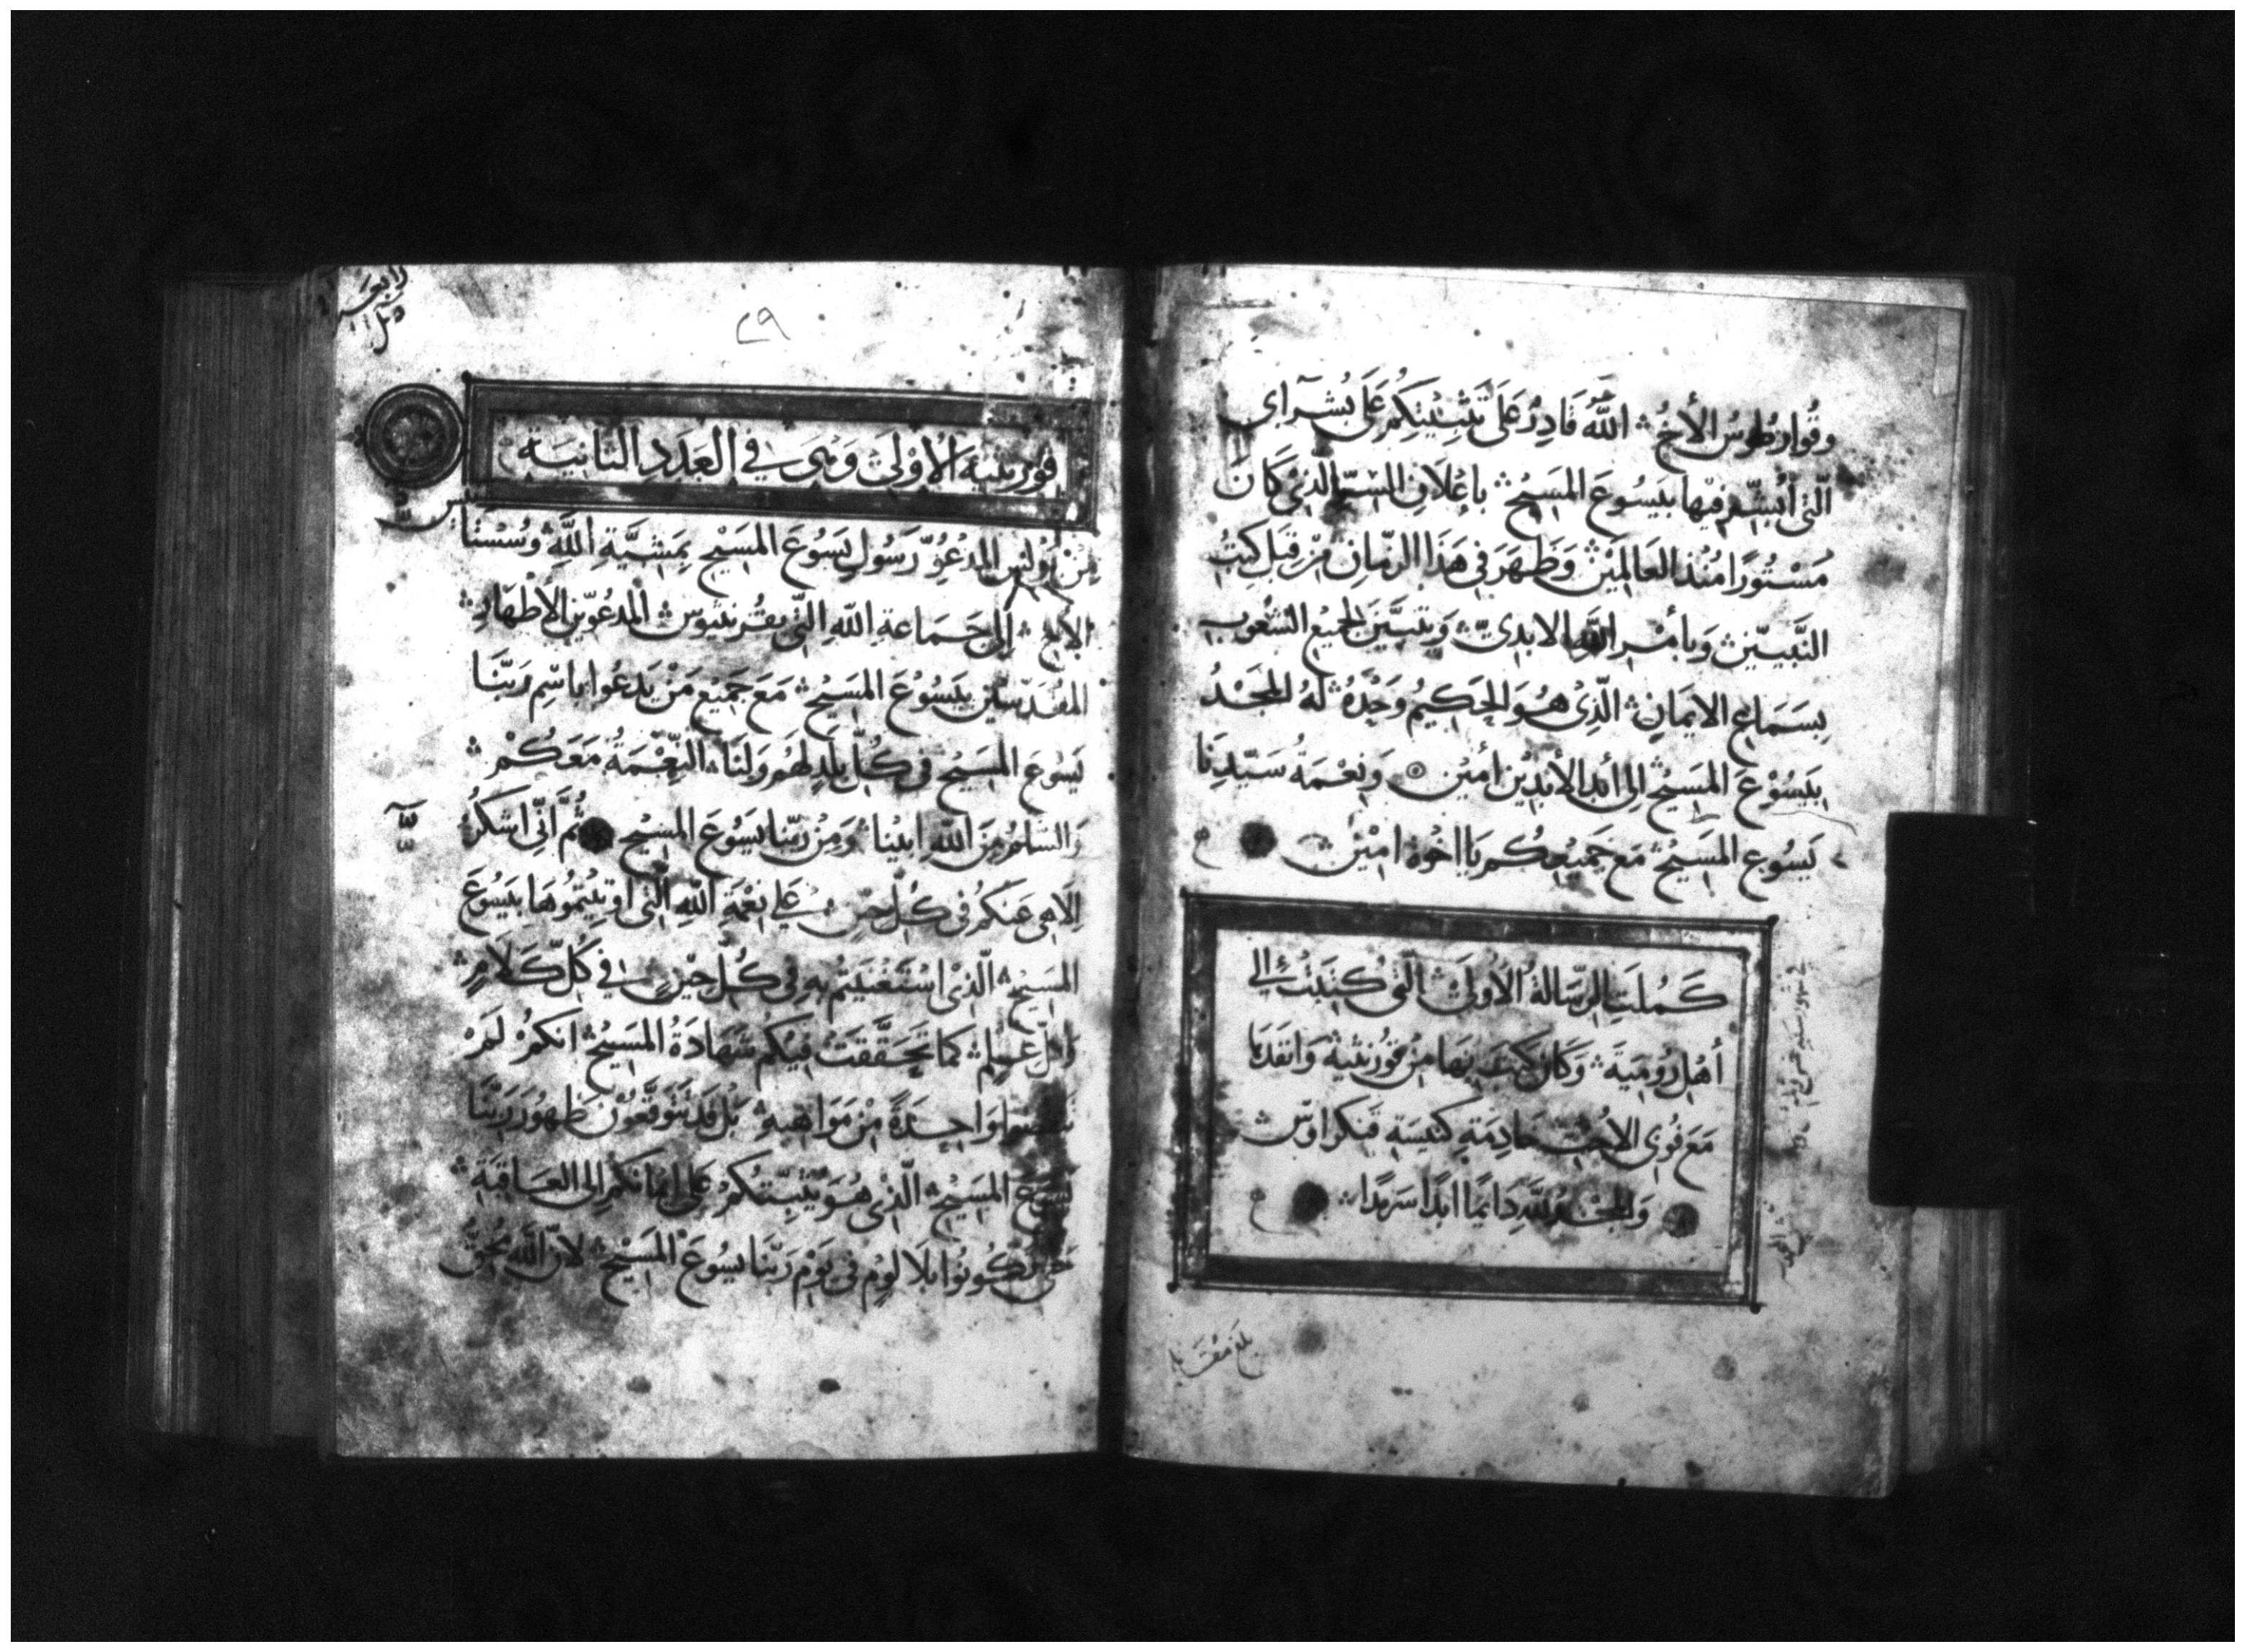 وقُوارطُوسُ الأخُ اللَّهُ قَادِرٌ عَلَى تَثبِيْتِكُمْ عَلَى بُشرَآىِ
الَّتى أُبشِّر فيْها بيَسُوعَ المَسِيْحِ بإعْلَانِ السِّرِّ الَّذِى كَانَ
مَسْتُورًا مُنْذ العَالَمِيْنَ وَظَهَرَ فى هَذَا الزّمَانِ مِنْ قِبَلِ كتُبِ
النَّبيّينَ وَبأمْرِ اللَّهِ الابدىّ وَتبَيَّنَ لجَميْع الشُعُوبِ
بِسَمَاعِ الايمَانِ الَّذِىْ هُوَ الحَكِيمُ وَحْدَهُ لهُ المَجْدُ
بيَسُوْعَ المَسِيْحِ الى أبَد الأبَدِيْن أمِيْن وَنِعْمَةُ سَيّدِنَا
يَسُوع المَسِيْحِ مَع جَميْعِكُم يَا اخْوة امِيْن
كَمُلَتِ الرّسَالةُ الأُولَى الَّتى كتبَتْ إلى
أهْل رُومِيَةَ وَكَانَ كتبَ بهَا مِنْ قُورنثيةَ وَانفَدَهَا
مَعَ فُوبى الاُخْتِ خادِمَةِ كنيسَةِ قنكراوس
وَالمجْدُ للَّهِ دَايمًا ابَدًا سَرمَدًا
بلغ مقابله
٢٩
قورنثية الأوْلَى وَهى في العَدَدِ الثانيَة
مِنْ بُولُس المَدعُوّ رَسُول يَسُوعَ المَسِيْح بِمَشِيَّةِ اللَّهِ وَسُسْتَانِس
الأخ إلى جَمَاعةِ اللَّهِ الَّتى بقُرنثيوس المَدعُوّين الأطْهَارِ
المُقَدّسِيْن بيَسُوْعَ المَسِيْحِ مَعَ جَمِيْع مَنْ يَدعُوا باسْمِ رَبّنَا
يَسُوعَ المَسِيْحِ فى كُلّ بَلَدٍ لهَم وَلنَا النّعْمَةُ مَعَكُمْ
وَالسَّلمُ مِنَ اللَّهِ ابيْنا وَمِنْ ربّنا يَسُوْعَ المَسِيْحِ ثُمَّ انّى اشكرُ
الَاهى عَنكُمْ فى كُلّ حِيْنٍ على نِعْمَةِ اللَّهِ الَّتى اوتِيْتُمُوهَا بيَسُوعَ
المَسِيْحِ الَّذىْ اسْتَغْنَيْتُم بهِ فى كُلّ حِيْنٍ في كُلّ كَلَامٍ
وَكل عِلمٍ كمَا تَحَقَّقَتْ فِيْكُمْ شَهَادَةُ المَسِيْحِ انكمْ لَمْ
وَاحِدَةً مِنْ مَوَاهبِهِ بَلْ قَدْ تتوَقَّعُوْن ظهُورَ رَبّنَا
يَسُوْعَ المَسِيْحِ الَّذىْ هُوَ يُثبّتكُمْ عَلى ايمَانكُمْ الى العَاقبَةِ
حَتى تكُونُوا بلَا لَوْمٍ فى يَوْمِ رَبّنَا يسُوعَ المَسِيْحِ لأنّ اللَّه مُحقّ